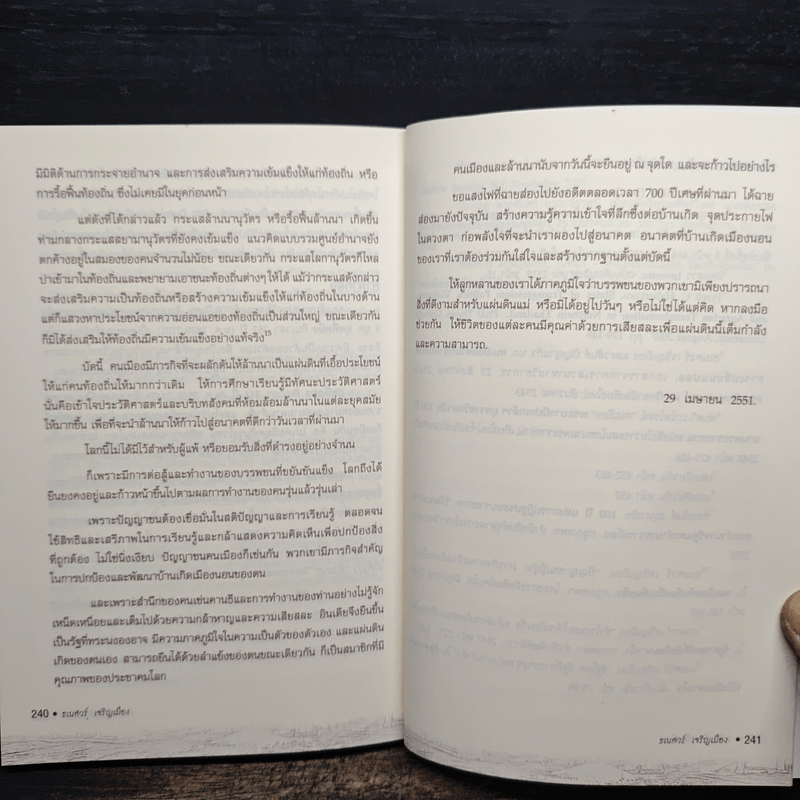 มีมิติด้านการกระจายอำนาจ และการส่งเสริมความเข้มแข็งให้แก่ท้องถิ่น หรือ
การรื้อฟื้นท้องถิ่น ซึ่งไม่เคยมีในยุคก่อนหน้า
แต่ดังที่ได้กล่าวแล้ว กระแสล้านนานุวัตร หรือรื้อฟื้นล้านนา เกิดขึ้น
ท่ามกลางกระแสสยามานุวัตรที่ยังคงเข้มแข็ง แนวคิดแบบรวมศูนย์อำนาจยัง
ตกค้างอยู่ในสมองของคนจำนวนไม่น้อย ขณะเดียวกัน กระแสโลกานุวัตรก็ไหล
บ่าเข้ามาในท้องถิ่นและพยายามเอาชนะท้องถิ่นต่างๆ ให้ได้ แม้ว่ากระแสดังกล่าว
จะส่งเสริมความเป็นท้องถิ่นหรือสร้างความเข้มแข็งให้แก่ท้องถิ่นในบางด้าน
แต่ก็แสวงหาประโยชน์จากความอ่อนแอของท้องถิ่นเป็นส่วนใหญ่ ขณะเดียวกัน
ก็มิได้ส่งเสริมให้ท้องถิ่นมีความเข้มแข็งอย่างแท้จริง15
บัดนี้ คนเมืองมีภารกิจที่จะผลักดันให้ล้านนาเป็นแผ่นดินที่เอื้อประโยชน์
ให้แก่คนท้องถิ่นให้มากกว่าเดิม ให้การศึกษาเรียนรู้มีทัศนะประวัติศาสตร์
นั่นคือเข้าใจประวัติศาสตร์และบริบทสังคมที่ห้อมล้อมล้านนาในแต่ละยุคสมัย
ให้มากขึ้น เพื่อที่จะนำล้านนาให้ก้าวไปสู่อนาคตที่ดีกว่าวันเวลาที่ผ่านมา
โลกนี้ไม่ได้มีไว้สำหรับผู้แพ้ หรือยอมรับสิ่งที่ดำรงอยู่อย่างจำนน
ก็เพราะมีการต่อสู้และทำงานของบรรพชนที่ขยันขันแข็ง โลกถึงได้
ยืนยงคงอยู่และก้าวหน้าขึ้นไปตามผลการทำงานของคนรุ่นแล้วรุ่นเล่า
เพราะปัญญาชนต้องเชื่อมั่นในสติปัญญาและการเรียนรู้ ตลอดจน
ใช้สิทธิและเสรีภาพในการเรียนรู้และกล้าแสดงความคิดเห็นเพื่อปกป้องสิ่ง
ที่ถูกต้อง ไม่ใช่นิ่งเงียบ ปัญญาชนคนเมืองก็เช่นกัน พวกเขามีภารกิจสำคัญ
ในการปกป้องและพัฒนาบ้านเกิดเมืองนอนของตน
และเพราะสำนึกของคนเช่นคานธีและการทำงานของท่านอย่างไม่รู้จัก
เหน็ดเหนื่อยและเต็มไปด้วยความกล้าหาญและความเสียสละ อินเดียจึงยืนขึ้น
เป็นรัฐที่ทระนงองอาจ มีความภาคภูมิใจในความเป็นตัวของตัวเอง และแผ่นดิน
เกิดของตนเอง สามารถยืนได้ด้วยลำแข้งของตนขณะเดียวกัน ก็เป็นสมาชิกที่มี
คุณภาพของประชาคมโลก
240 • ธเนศวร์ เจริญเมือง
คนเมืองและล้านนานับจากวันนี้จะยืนอยู่ ณ จุดใด และจะก้าวไปอย่างไร
ขอแสงไฟที่ฉายส่องไปยังอดีตตลอดเวลา 700 ปีเศษที่ผ่านมา ได้ฉาย
ส่องมายังปัจจุบัน สร้างความรู้ความเข้าใจที่ลึกซึ้งต่อบ้านเกิด จุดประกายไฟ
ในดวงตา ก่อพลังใจที่จะนำเราผองไปสู่อนาคต อนาคตที่บ้านเกิดเมืองนอน
ของเราที่เราต้องร่วมกันใส่ใจและสร้างรากฐานตั้งแต่บัดนี้
ให้ลูกหลานของเราได้ภาคภูมิใจว่าบรรพชนของพวกเขามิเพียงปรารถนา
สิ่งที่ดีงามสำหรับแผ่นดินแม่ หรือมิได้อยู่ไปวันๆ หรือไม่ใช่ได้แต่คิด หากลงมือ
ช่วยกัน ให้ชีวิตของแต่ละคนมีคุณค่าด้วยการเสียสละเพื่อแผ่นดินนี้เต็มกำลัง
และความสามารถ.
29 เมษายน 2551.
ธเนศวร์ เจริญเมือง • 241